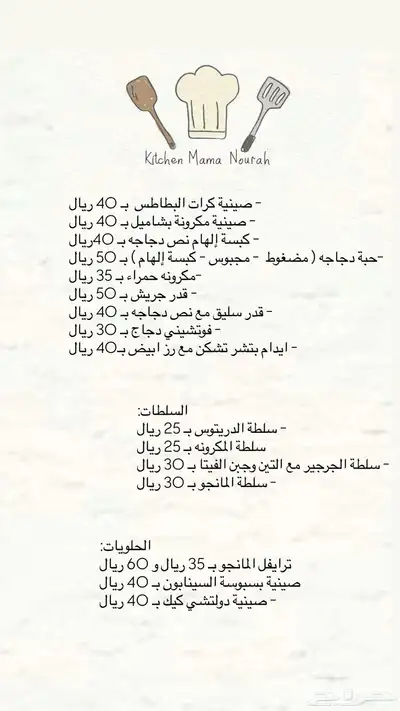 Kitchen Mama Nourah
- صينية كرات البطاطس بـ 40 ريال
- صينية مكرونة بشاميل بـ 40 ريال
- كبسة إلهام نص دجاجه بـ 40ريال
-حبة دجاجه ( مضغوط - مجبوس - كبسة إلهام ) بـ 50 ريال
-مكرونه حمراء بـ 35 ريال
- قدر جريش بـ 50 ريال
- قدر سليق مع نص دجاجه بـ 40 ريال
- فوتشيني دجاج بـ 30 ريال
- ايدام بتشر تشكن مع رز ابيض بـ40 ريال
السلطات:
- سلطة الدريتوس بـ 25 ريال
سلطة المكرونه بـ 25 ريال
- سلطة الجرجير مع التين وجبن الفيتا بـ 30 ريال
- سلطة المانجو بـ 30 ريال
الحلويات:
ترايفل المانجو بـ 35 ريال و 60 ريال
صينية بسبوسة السينابون بـ 40 ريال
- صينية دولتشي كيك بـ 40 ريال
حراج